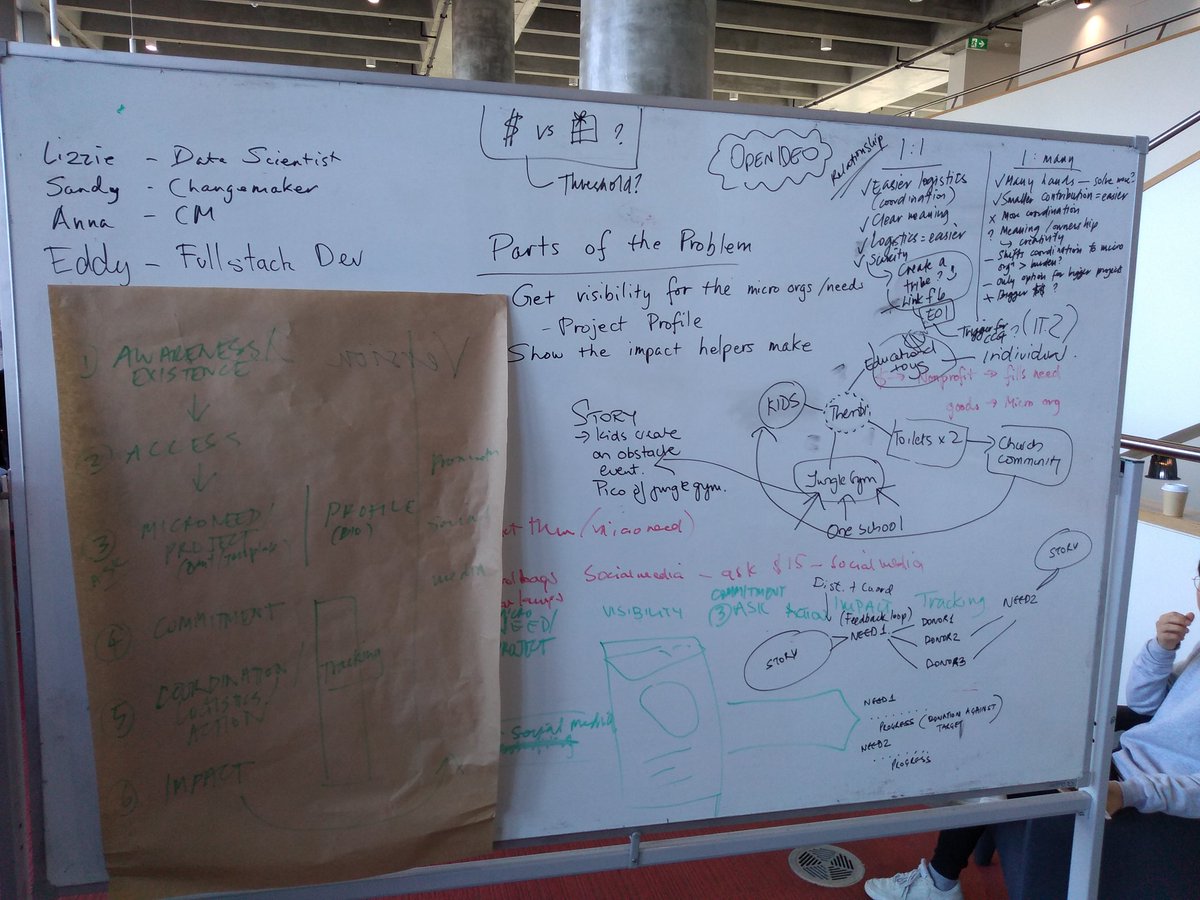 Lizzie - Data Scientist
Sandy - Changemaker
Anna - CM
Eddy - Fullstack Dev
$ vs ?
Threshold?
OPENIDEO
Relationship
1:1
✓ Easier logistics
(coordination)
✓ Clear meaning
✓ Logistics = easier
✓ Scarcity
Create a
tribe??
Link fb
1: many
✓ Many hands - solve more?
✓ Smaller contribution = easier
x More coordination
? Meaning/ownership
↳ creativity
- Shifts coordination to micro
org > burden?
- Only option for bigger project
Parts of the Problem
Get visibility for the micro orgs/needs
- Project Profile
Show the impact helpers make
EOI
Trigger for
(IT2)
Educational
toys
individual.
Nonprofit → fills need
goods → Micro org
KIDS
Themb.
Toilets x 2
Church
community
Jungle Gym
One school
STORY
→ kids create
an obstacle
event.
Pico of jungle gym.
1) AWARENESS/
EXISTENCE
↓
2) ACCESS
↓
3 MICRONEED/
PROJECT
PROFILE
(BIO)
4 COMMITMENT
5 COORDINATION/
LOGISTICS/
ACTION
Tracking
6 IMPACT
them (micro need)
Social media - ask $15 - social media
MICRO
NEED/
PROJECT
VISIBILITY
COMMITMENT
③ ASK
Action
Dist. + Coord
IMPACT
(Feedback loop)
Tracking
Social media
STORY
NEED1
DONOR1
DONOR2
DONOR3
NEED2
STORY
NEED1
PROGRESS (DONATION AGAINST
TARGET)
NEED2
PROGRESS